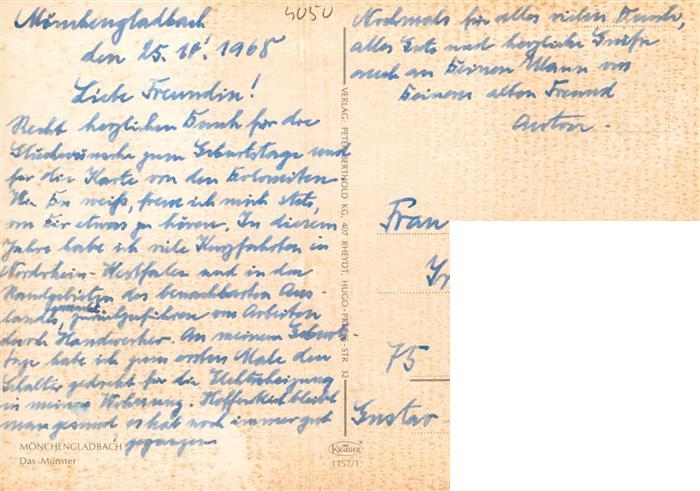 Mönchengladbach
4050
den 25. 10! 1968
Liebe Freundin!
Recht herzlichen Dank für die
Glückwünsche zum Geburtstage und
für die Karte von den Dolomiten
Wie Du weißt, freue ich mich stets,
von Dir etwas zu hören. In diesem
Jahre habe ich viele Kurzfahrten in
Nordrhein-Westfalen und in den
Randgebieten des benachbarten Aus-
landes, von Arbeiten
durch Handwerker. An meinem Geburts-
tage habe ich zum ersten Male den
Schalter gedreht für die Elektroheizung
in meiner Wohnung. Hoffentlich bleibt
man gesund es hat noch immer gut
gegangen
Nochmals für alles vielen Dank,
alles Gute und herzliche Grüße
auch an Deinen Mann von
Deinem alten Freund
Anton.
Frau
75
Gustav-
VERLAG: PETER BERTHOLD KG, 407 RHEYDT, HUGO-PREUSS-STR. 32
MÖNCHENGLADBACH
Das Münster
KRÜGER
1157/1